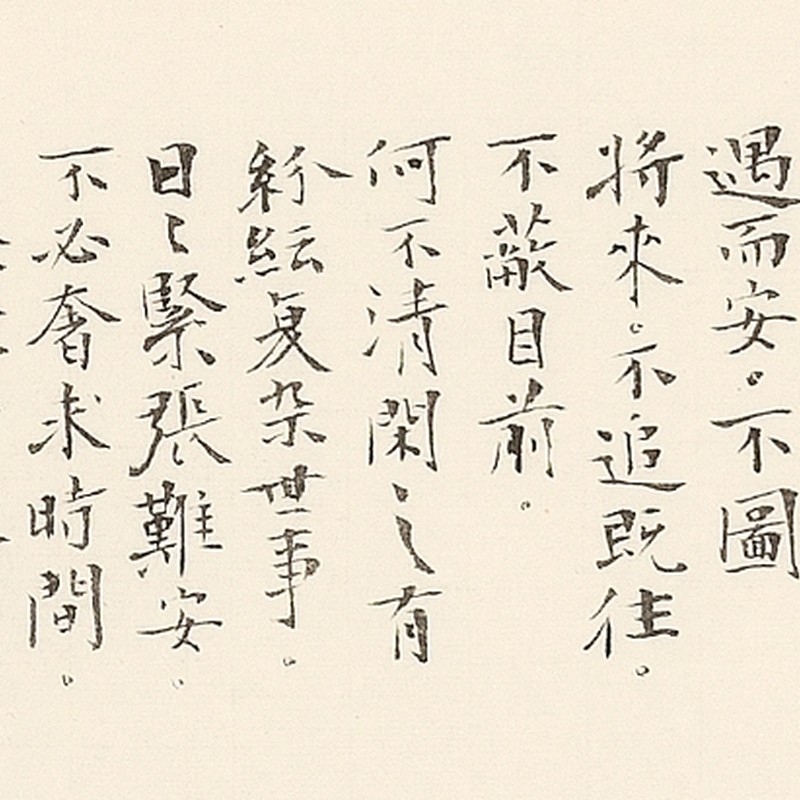 遇而安。不圖
將來。不追既往。
不蔽目前。
何不清閑之有
紛紜复杂世事。
日々緊張難安。
不必奢求時間。